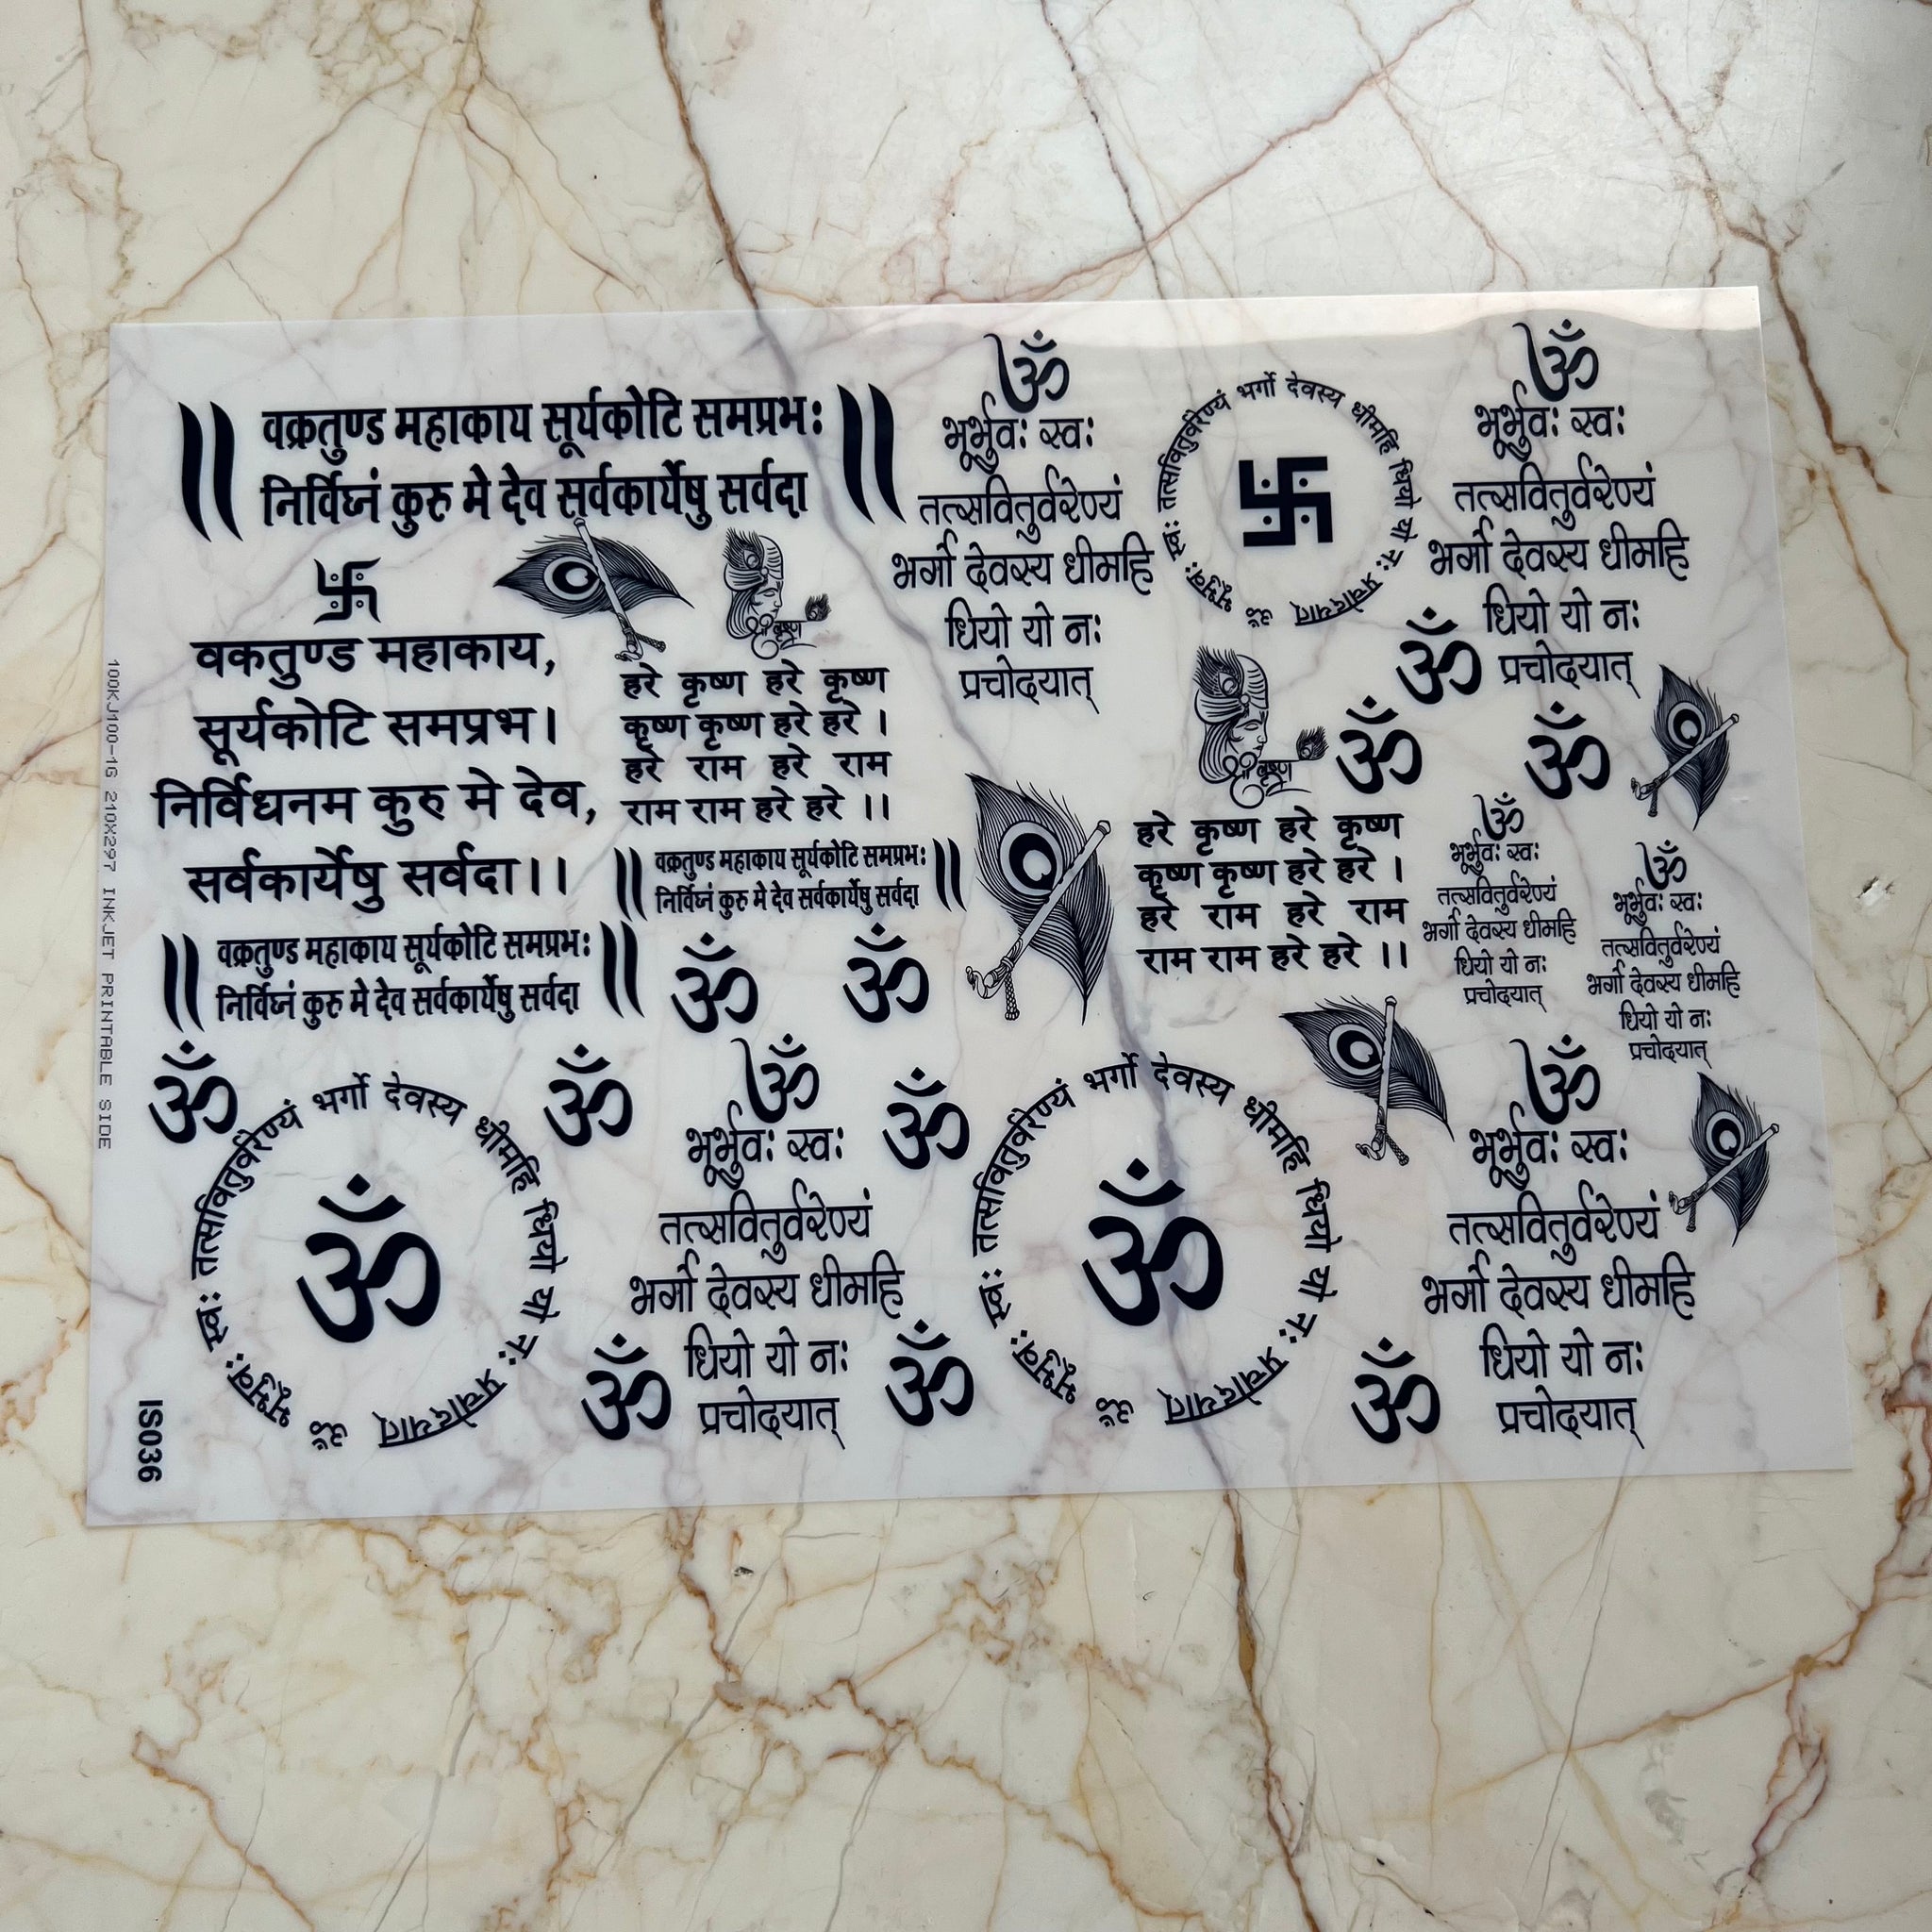 ॥ वक्रतुण्ड महाकाय सूर्यकोटि समप्रभः ॥
निर्विघ्नं कुरु मे देव सर्वकार्येषु सर्वदा
वकतुण्ड महाकाय,
सूर्यकोटि समप्रभ।
निर्विधनम कुरु मे देव,
सर्वकार्येषु सर्वदा।।
श्री कृष्ण
हरे कृष्ण हरे कृष्ण
कृष्ण कृष्ण हरे हरे ।
हरे राम हरे राम
राम राम हरे हरे ।।
॥ वक्रतुण्ड महाकाय सूर्यकोटि समप्रभः ॥
निर्विघ्नं कुरु मे देव सर्वकार्येषु सर्वदा
॥ वक्रतुण्ड महाकाय सूर्यकोटि समप्रभः ॥
निर्विघ्नं कुरु मे देव सर्वकार्येषु सर्वदा
ॐ
भूर्भुवः स्वः
तत्सवितुर्वरेण्यं
भर्गो देवस्य धीमहि
धियो यो नः
प्रचोदयात्
ॐ भूर्भुवः स्वः तत्सवितुर्वरेण्यं भर्गो देवस्य धीमहि धियो यो नः प्रचोदयात्
卐
ॐ
भूर्भुवः स्वः
तत्सवितुर्वरेण्यं
भर्गो देवस्य धीमहि
धियो यो नः
प्रचोदयात्
ॐ
ॐ
ॐ
श्री कृष्ण
हरे कृष्ण हरे कृष्ण
कृष्ण कृष्ण हरे हरे ।
हरे राम हरे राम
राम राम हरे हरे ।।
ॐ
भूर्भुवः स्वः
तत्सवितुर्वरेण्यं
भर्गो देवस्य धीमहि
धियो यो नः
प्रचोदयात्
ॐ
भूर्भुवः स्वः
तत्सवितुर्वरेण्यं
भर्गो देवस्य धीमहि
धियो यो नः
प्रचोदयात्
ॐ
ॐ
ॐ
ॐ
ॐ
ॐ भूर्भुवः स्वः तत्सवितुर्वरेण्यं भर्गो देवस्य धीमहि धियो यो नः प्रचोदयात्
ॐ
ॐ
भूर्भुवः स्वः
तत्सवितुर्वरेण्यं
भर्गो देवस्य धीमहि
धियो यो नः
प्रचोदयात्
ॐ
ॐ
ॐ भूर्भुवः स्वः तत्सवितुर्वरेण्यं भर्गो देवस्य धीमहि धियो यो नः प्रचोदयात्
ॐ
ॐ
ॐ
भूर्भुवः स्वः
तत्सवितुर्वरेण्यं
भर्गो देवस्य धीमहि
धियो यो नः
प्रचोदयात्
100KJ100-1G 210X297 INKJET PRINTABLE SIDE
IS036